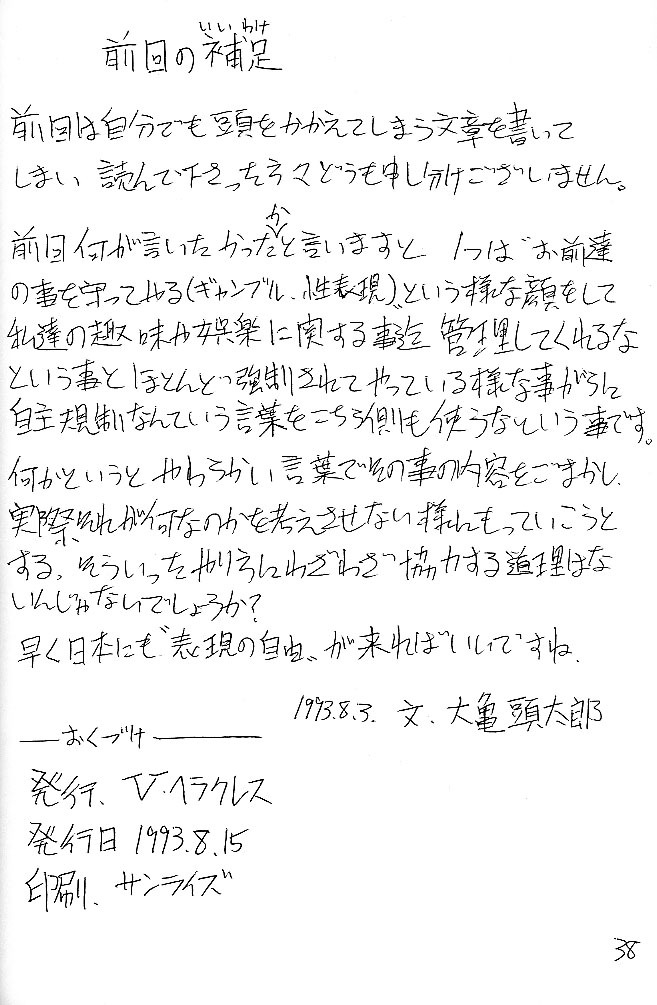 いいわけ
前回の補足
前回は自分でも頭をかかえてしまう文章を書いて
しまい 読んで下さった方々どうも申し分けございません。
か
前回何が言いたかったと言いますと 1つは“お前達
の事を守ってやる(ギャンブル、性表現)”という様な顔をして
私達の趣味や娯楽に関する事迄 管理してくれるな
という事と ほとんど強制されてやっている様な事がらに
自主規制なんていう言葉をこちら側も使うなという事です。
何かというと やわらかい言葉でその事の内容をごまかし、
実際それが何なのかを考えさせない様にもっていこうと
する、そういったやり方にわざわざ協力する道理はな
いんじゃないでしょうか?
早く日本にも“表現の自由”が来ればいいですね、
1993.8.3. 文、大亀頭太郎
―おくづけ―
発行、V・ヘラクレス
発行日 1993.8.15
印刷、サンライズ
38